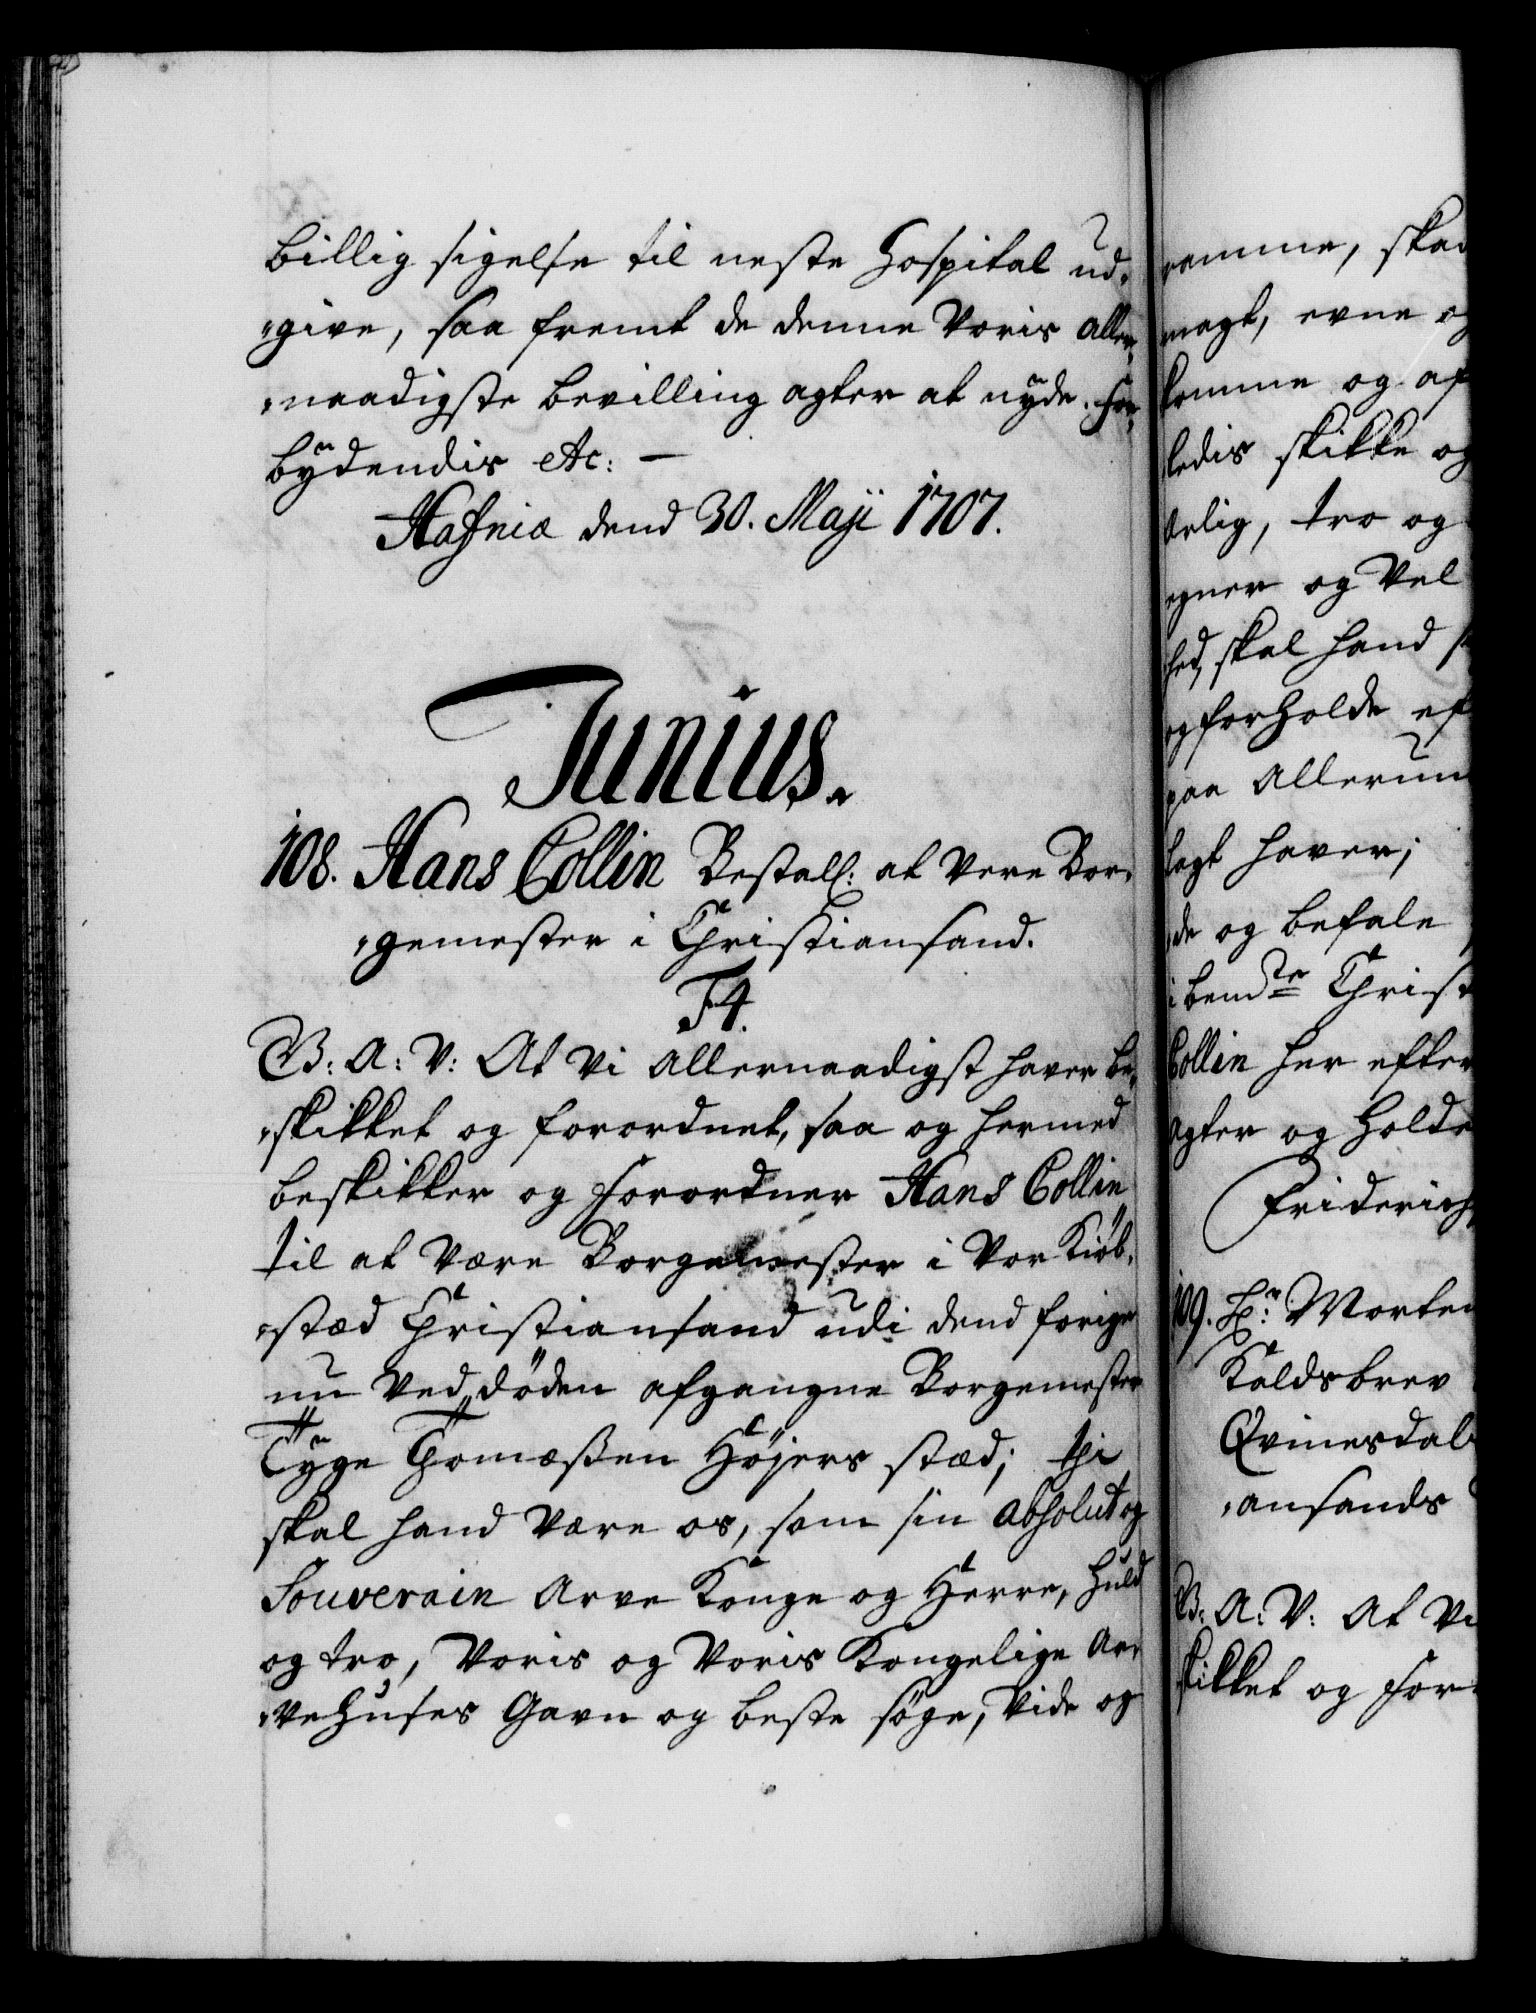 billig sigelse til neste Hospital ud„
„give, saa fremt de denne Voris aller„
„naadigste bevilling agter at nyde. For„
bydendis etc: —
Hafniæ dend 30. Maji 1707.
Junius.
108. Hans Collin Bestall: at Vere Bor„
„gemester i Christiansand.
F4.
G: A: V: At Vi allernaadigst haver be„
„skikket og forordnet, saa og hermed
beskikker og forordner Hans Collin
til at Være Borgemester i Vor Kiøb„
„stæd Christiansand udi dend forige
nu Ved døden afgangne Borgemester
Tyge Thomæßen Højers stæd; thi
skal hand Være os, som sin absolut og
Souverain Arve Konge og Herre, huld
og tro, Voris og Voris Kongelige Ar„
„vehuses Gavn og beste søge, Vide og
ramme, skad
magt, evne og
komme og af
ledis skikke og
ærlig, tro og
egner og Vel
hed, skal hand
og forholde ef
paa Allerun
lagt haver;
de og befale
i bemte Christ
Collin her efter
agter og holde
Friderichs
109. Hr: Morten
Kaldsbrev
Qvinesdals
„ansands
G: A: V: At Vi
skikket og for„